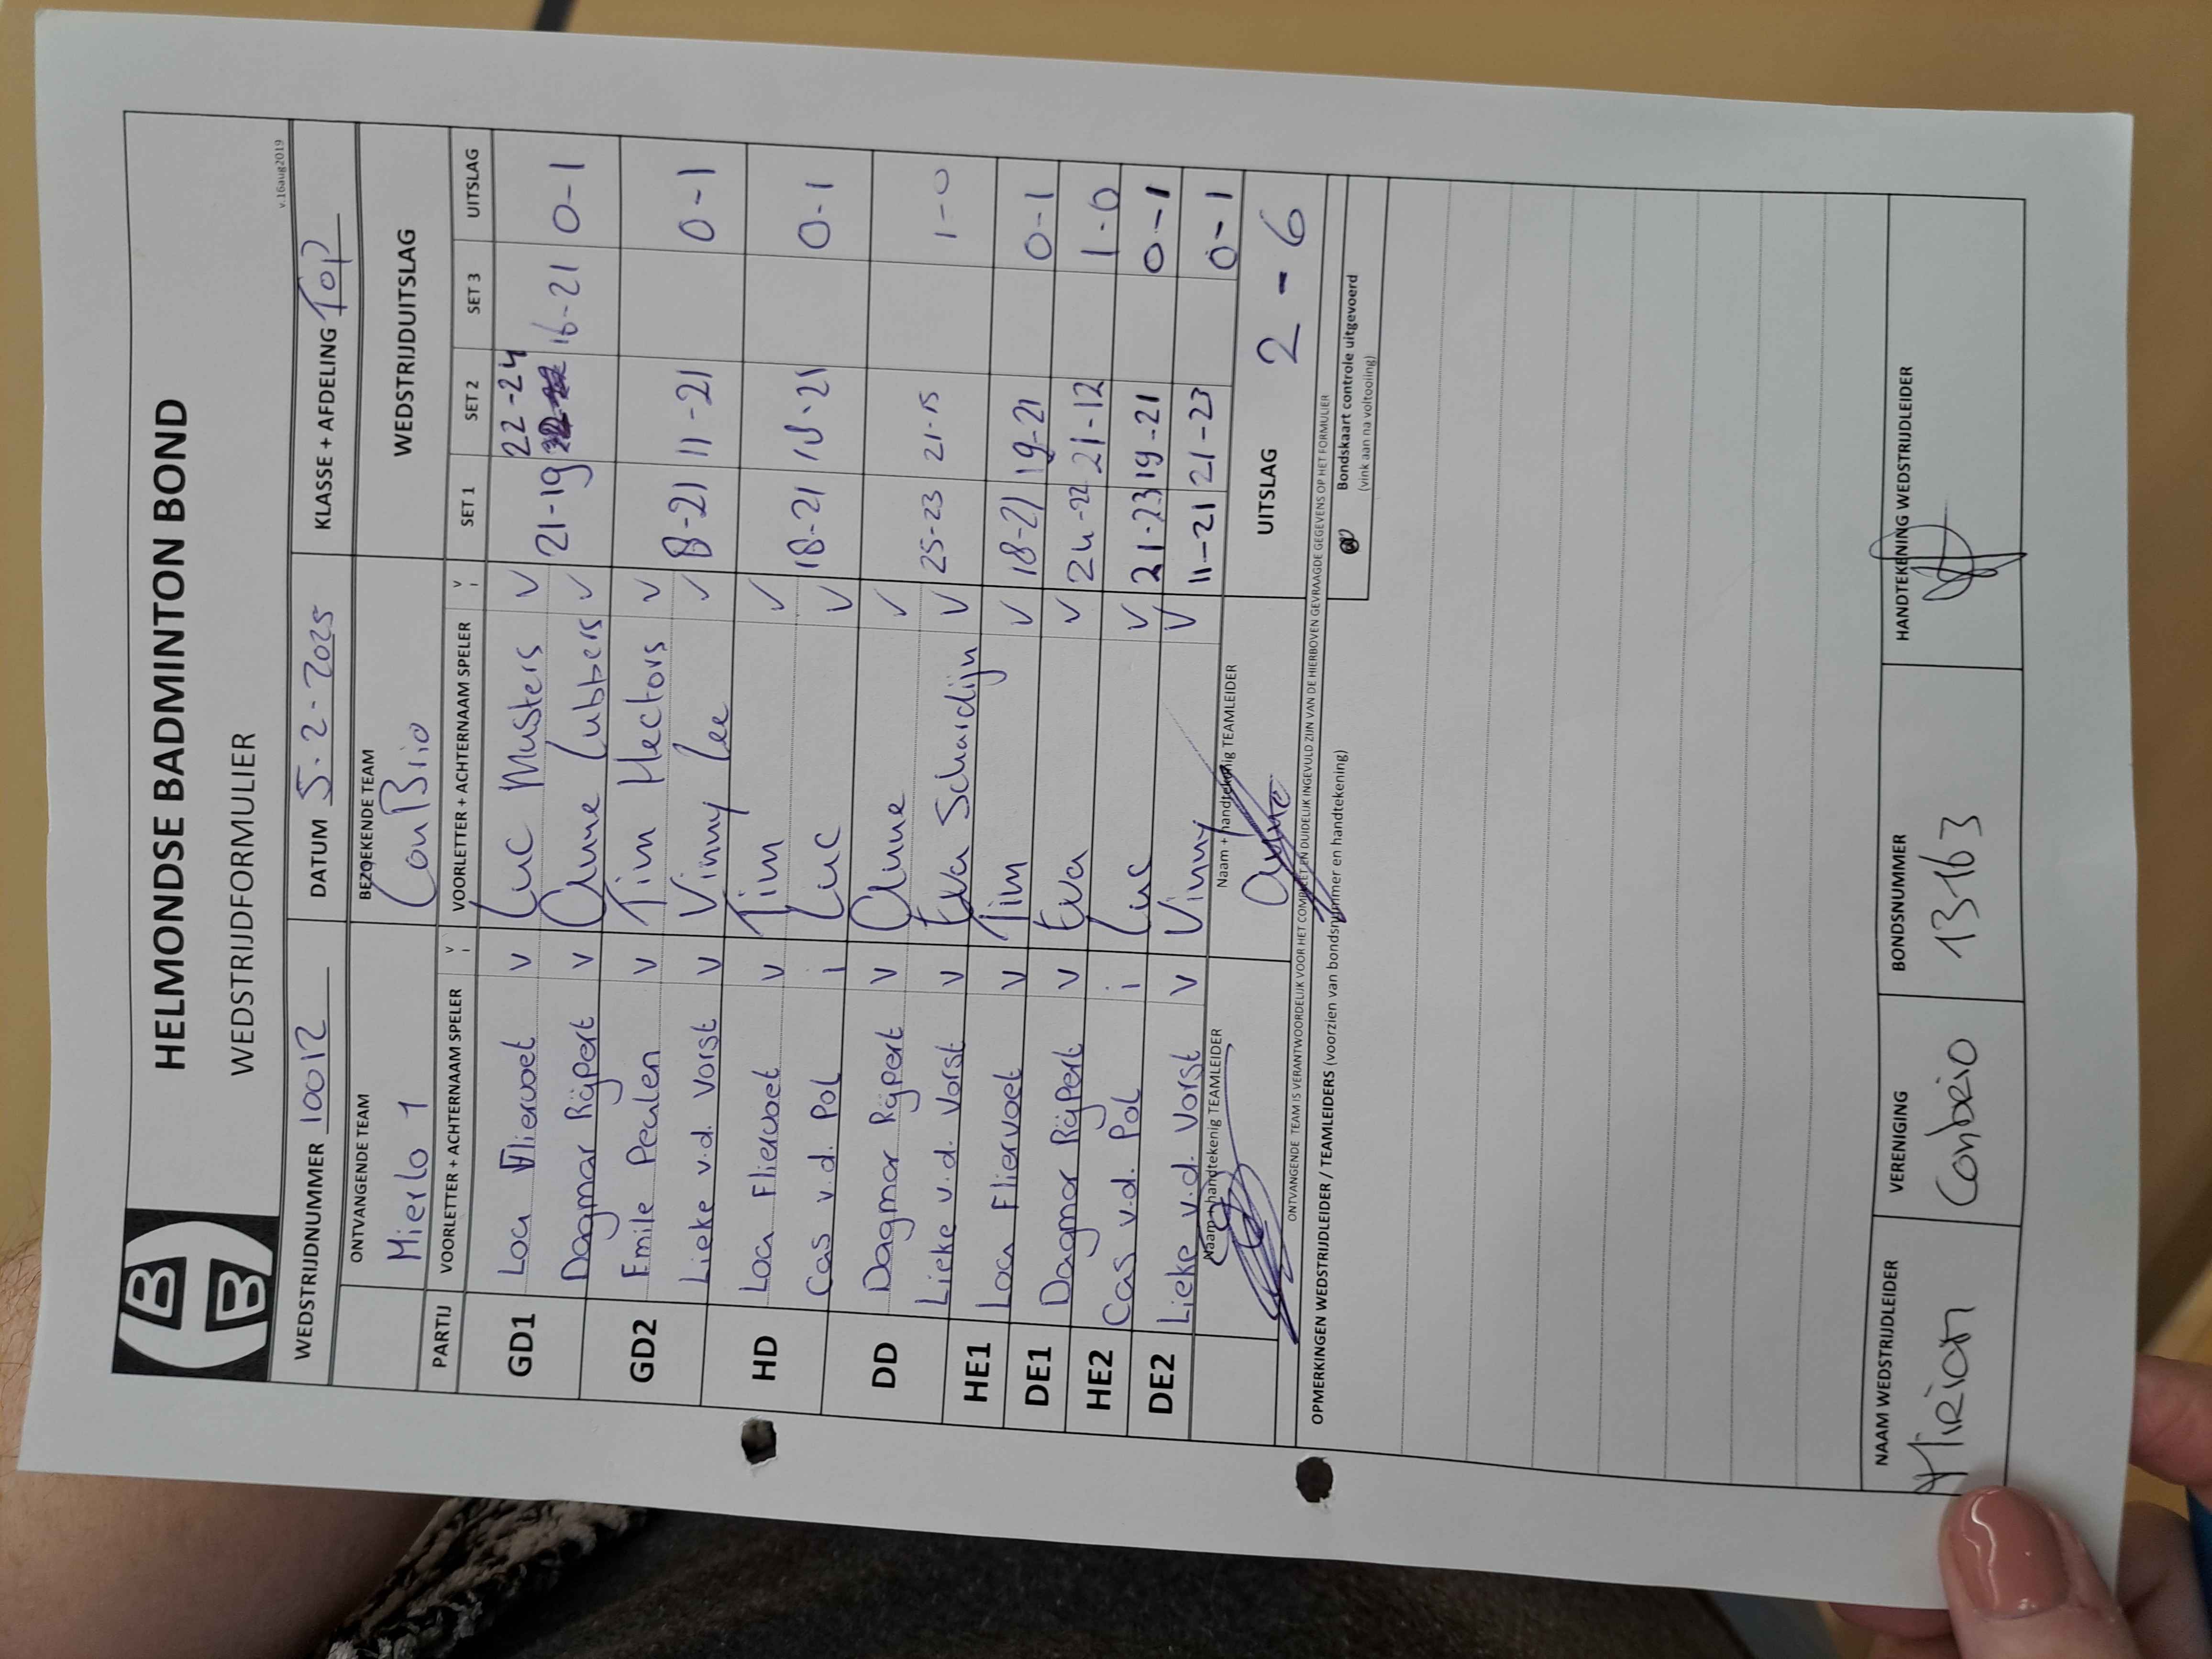 HELMONDSE BADMINTON BOND
WEDSTRIJDFORMULIER
v.16aug2019
WEDSTRIJDNUMMER 10012 DATUM 5-2-2025 KLASSE + AFDELING Top
ONTVANGENDE TEAM BEZOEKENDE TEAM WEDSTRIJDUITSLAG
Mierlo 1 ConBrio
PARTIJ VOORLETTER + ACHTERNAAM SPELER V i VOORLETTER + ACHTERNAAM SPELER V i SET 1 SET 2 SET 3 UITSLAG
GD1 Loa Fliervoet v Luc Musters v 22-24
Dagmar Rijpert v Anne Lubbers v 21-19 16-21 0-1
GD2 Emile Peulen v Tim Hectors v
Lieke v.d. Vorst v Vinny Lee v 8-21 11-21 0-1
HD Loa Fliervoet v Tim v
Cas v.d. Pol i Luc v 18-21 18-21 0-1
DD Dagmar Rijpert v Anne v
Lieke v.d. Vorst v Eva Schardijn v 25-23 21-15 1-0
HE1 Loa Fliervoet v Tim v 18-21 19-21 0-1
DE1 Dagmar Rijpert v Eva v 24-22 21-12 1-0
HE2 Cas v.d. Pol i Luc v 21-23 19-21 0-1
DE2 Lieke v.d. Vorst v Vinny v 11-21 21-23 0-1
Naam + handtekenig TEAMLEIDER Naam + handtekenig TEAMLEIDER UITSLAG 2-6
ONTVANGENDE TEAM IS VERANTWOORDELIJK VOOR HET COMPLEET EN DUIDELIJK INGEVULD ZIJN VAN DE HIERBOVEN GEVRAAGDE GEGEVENS OP HET FORMULIER
OPMERKINGEN WEDSTRIJDLEIDER / TEAMLEIDERS (voorzien van bondsnummer en handtekening)
Bondskaart controle uitgevoerd
(vink aan na voltooiing)
NAAM WEDSTRIJDLEIDER VERENIGING BONDSNUMMER HANDTEKENING WEDSTRIJDLEIDER
Mirian Conbrio 13163